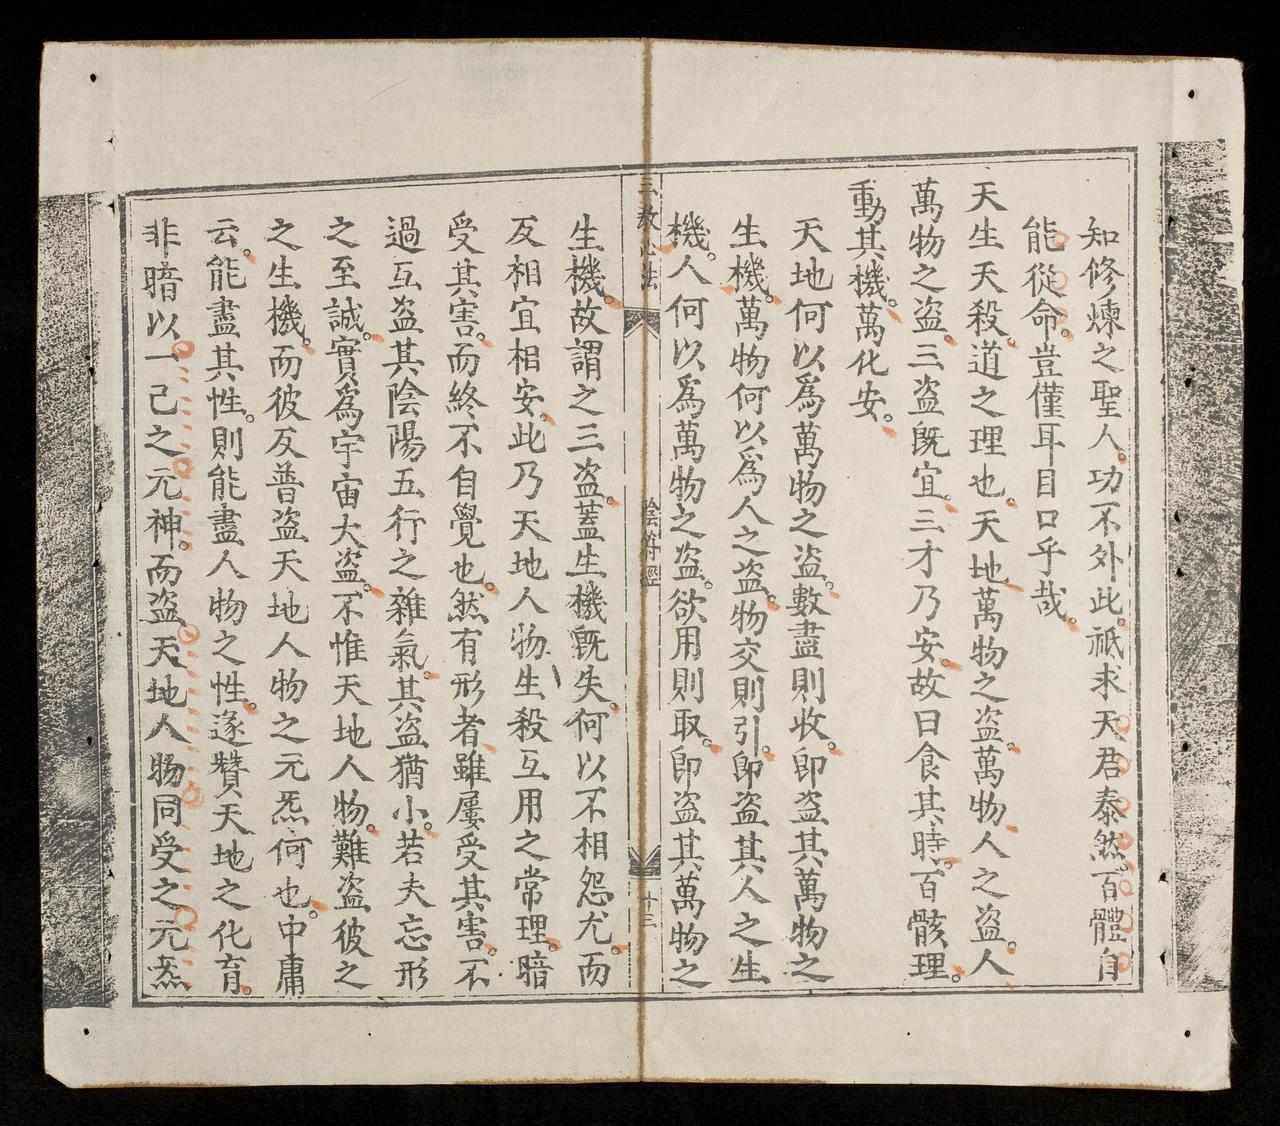 知修煉之聖人。功不外此。祗求天君泰然。百體自
能從命。豈僅耳目口乎哉。
天生天殺。道之理也。天地萬物之盜。萬物人之盜。人
萬物之盜。三盜既宜。三才乃安。故曰食其時。百骸理。
動其機。萬化安。
天地何以爲萬物之盜。數盡則收。卽盜其萬物之
生機。萬物何以爲人之盜。物交則引。卽盜其人之生
機。人何以爲萬物之盜。欲用則取。卽盜其萬物之
三教心法
陰符經
十三
生機。故謂之三盜。蓋生機既失。何以不相怨尤。而
反相宜相安。此乃天地人物生殺互用之常理。暗
受其害。而終不自覺也。然有形者雖屢受其害。不
過互盜其陰陽五行之雜氣。其盜猶小。若夫忘形
之至誠。實爲宇宙大盜。不惟天地人物。難盜彼之
之生機。而彼反普盜天地人物之元炁何也。中庸
云。能盡其性。則能盡人物之性。遂贊天地之化育。
非暗以一己之元神。而盜天地人物同受之元炁